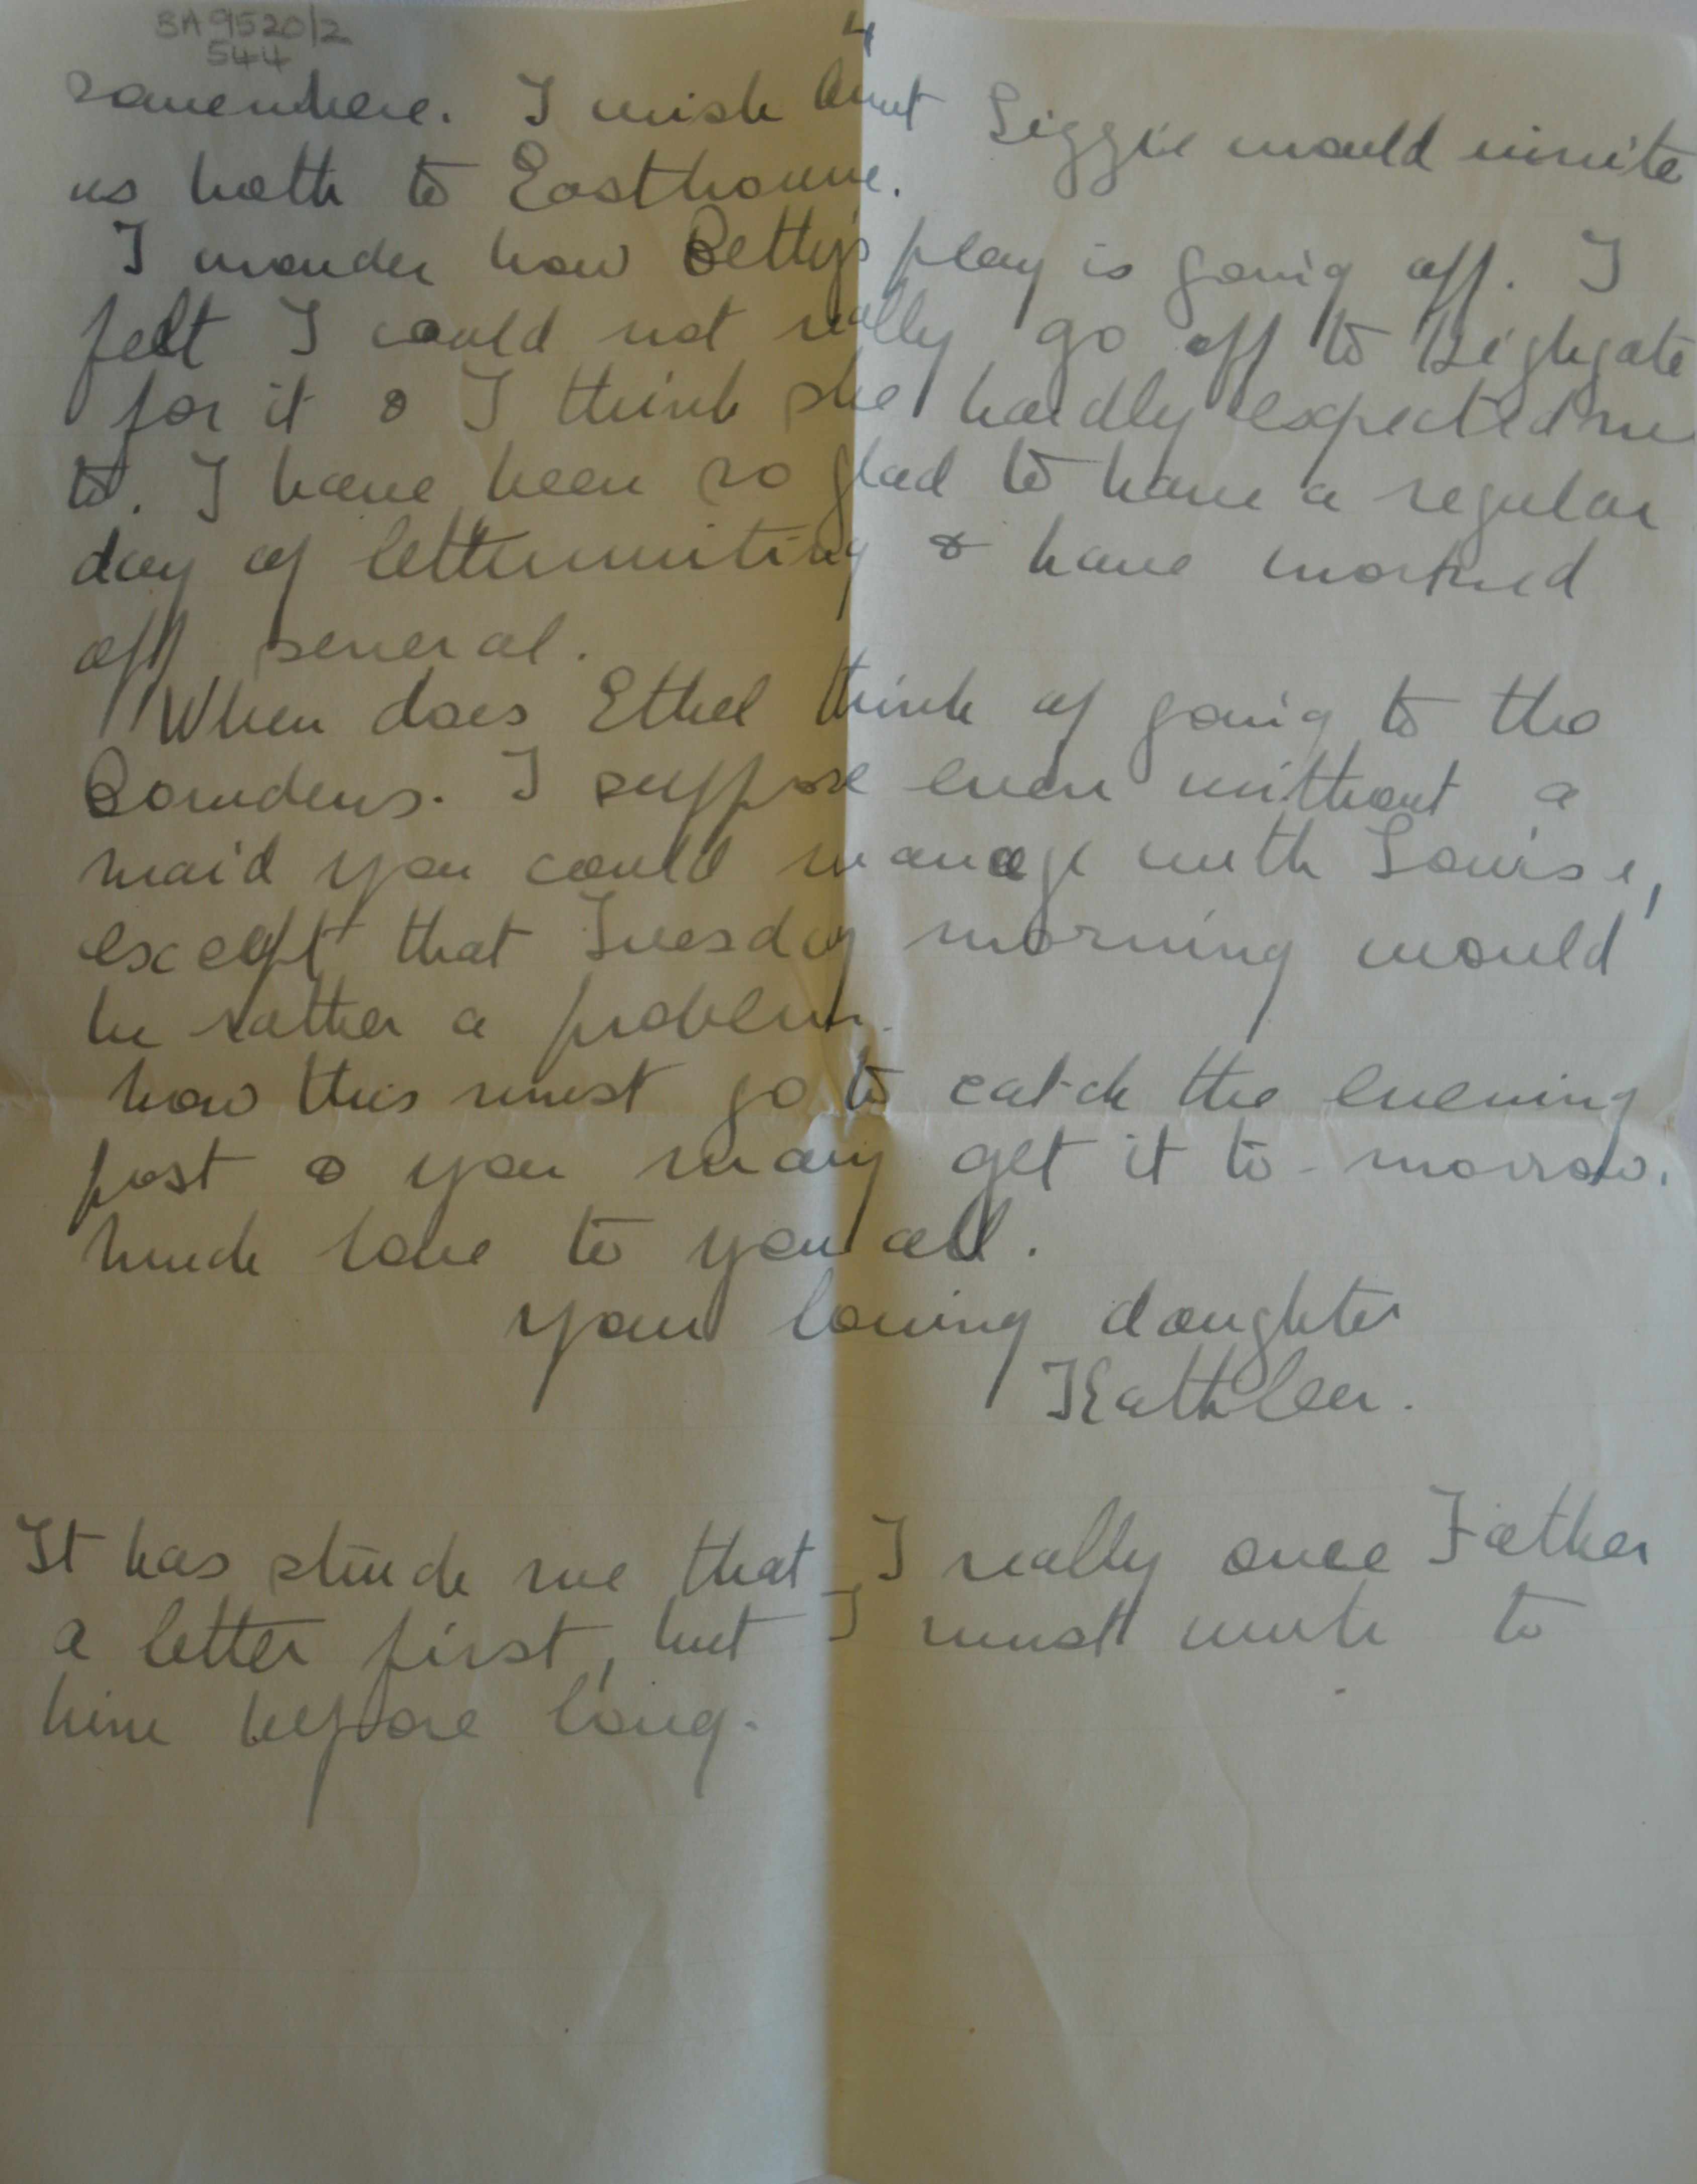 BA 9520/2
544
4
somewhere. I wish Aunt Lizzie would invite
us both to Eastbourne.
I wonder how Betty's play is going off. I
felt I could not really go off to Highgate
for it & I think she hardly expected me
to. I have been so glad to have a regular
day of letterwriting & have worked
off several.
When does Ethel think of going to the
I suppose even without a
maid you could manage with Louise,
except that Tuesday morning would
be rather a problem.
Now this must go to catch the evening
post & you may get it to-morrow.
Much love to you all.
Your loving daughter
Kathleen.
It has struck me that I really owe Father
a letter first, but I must write to
him before long.